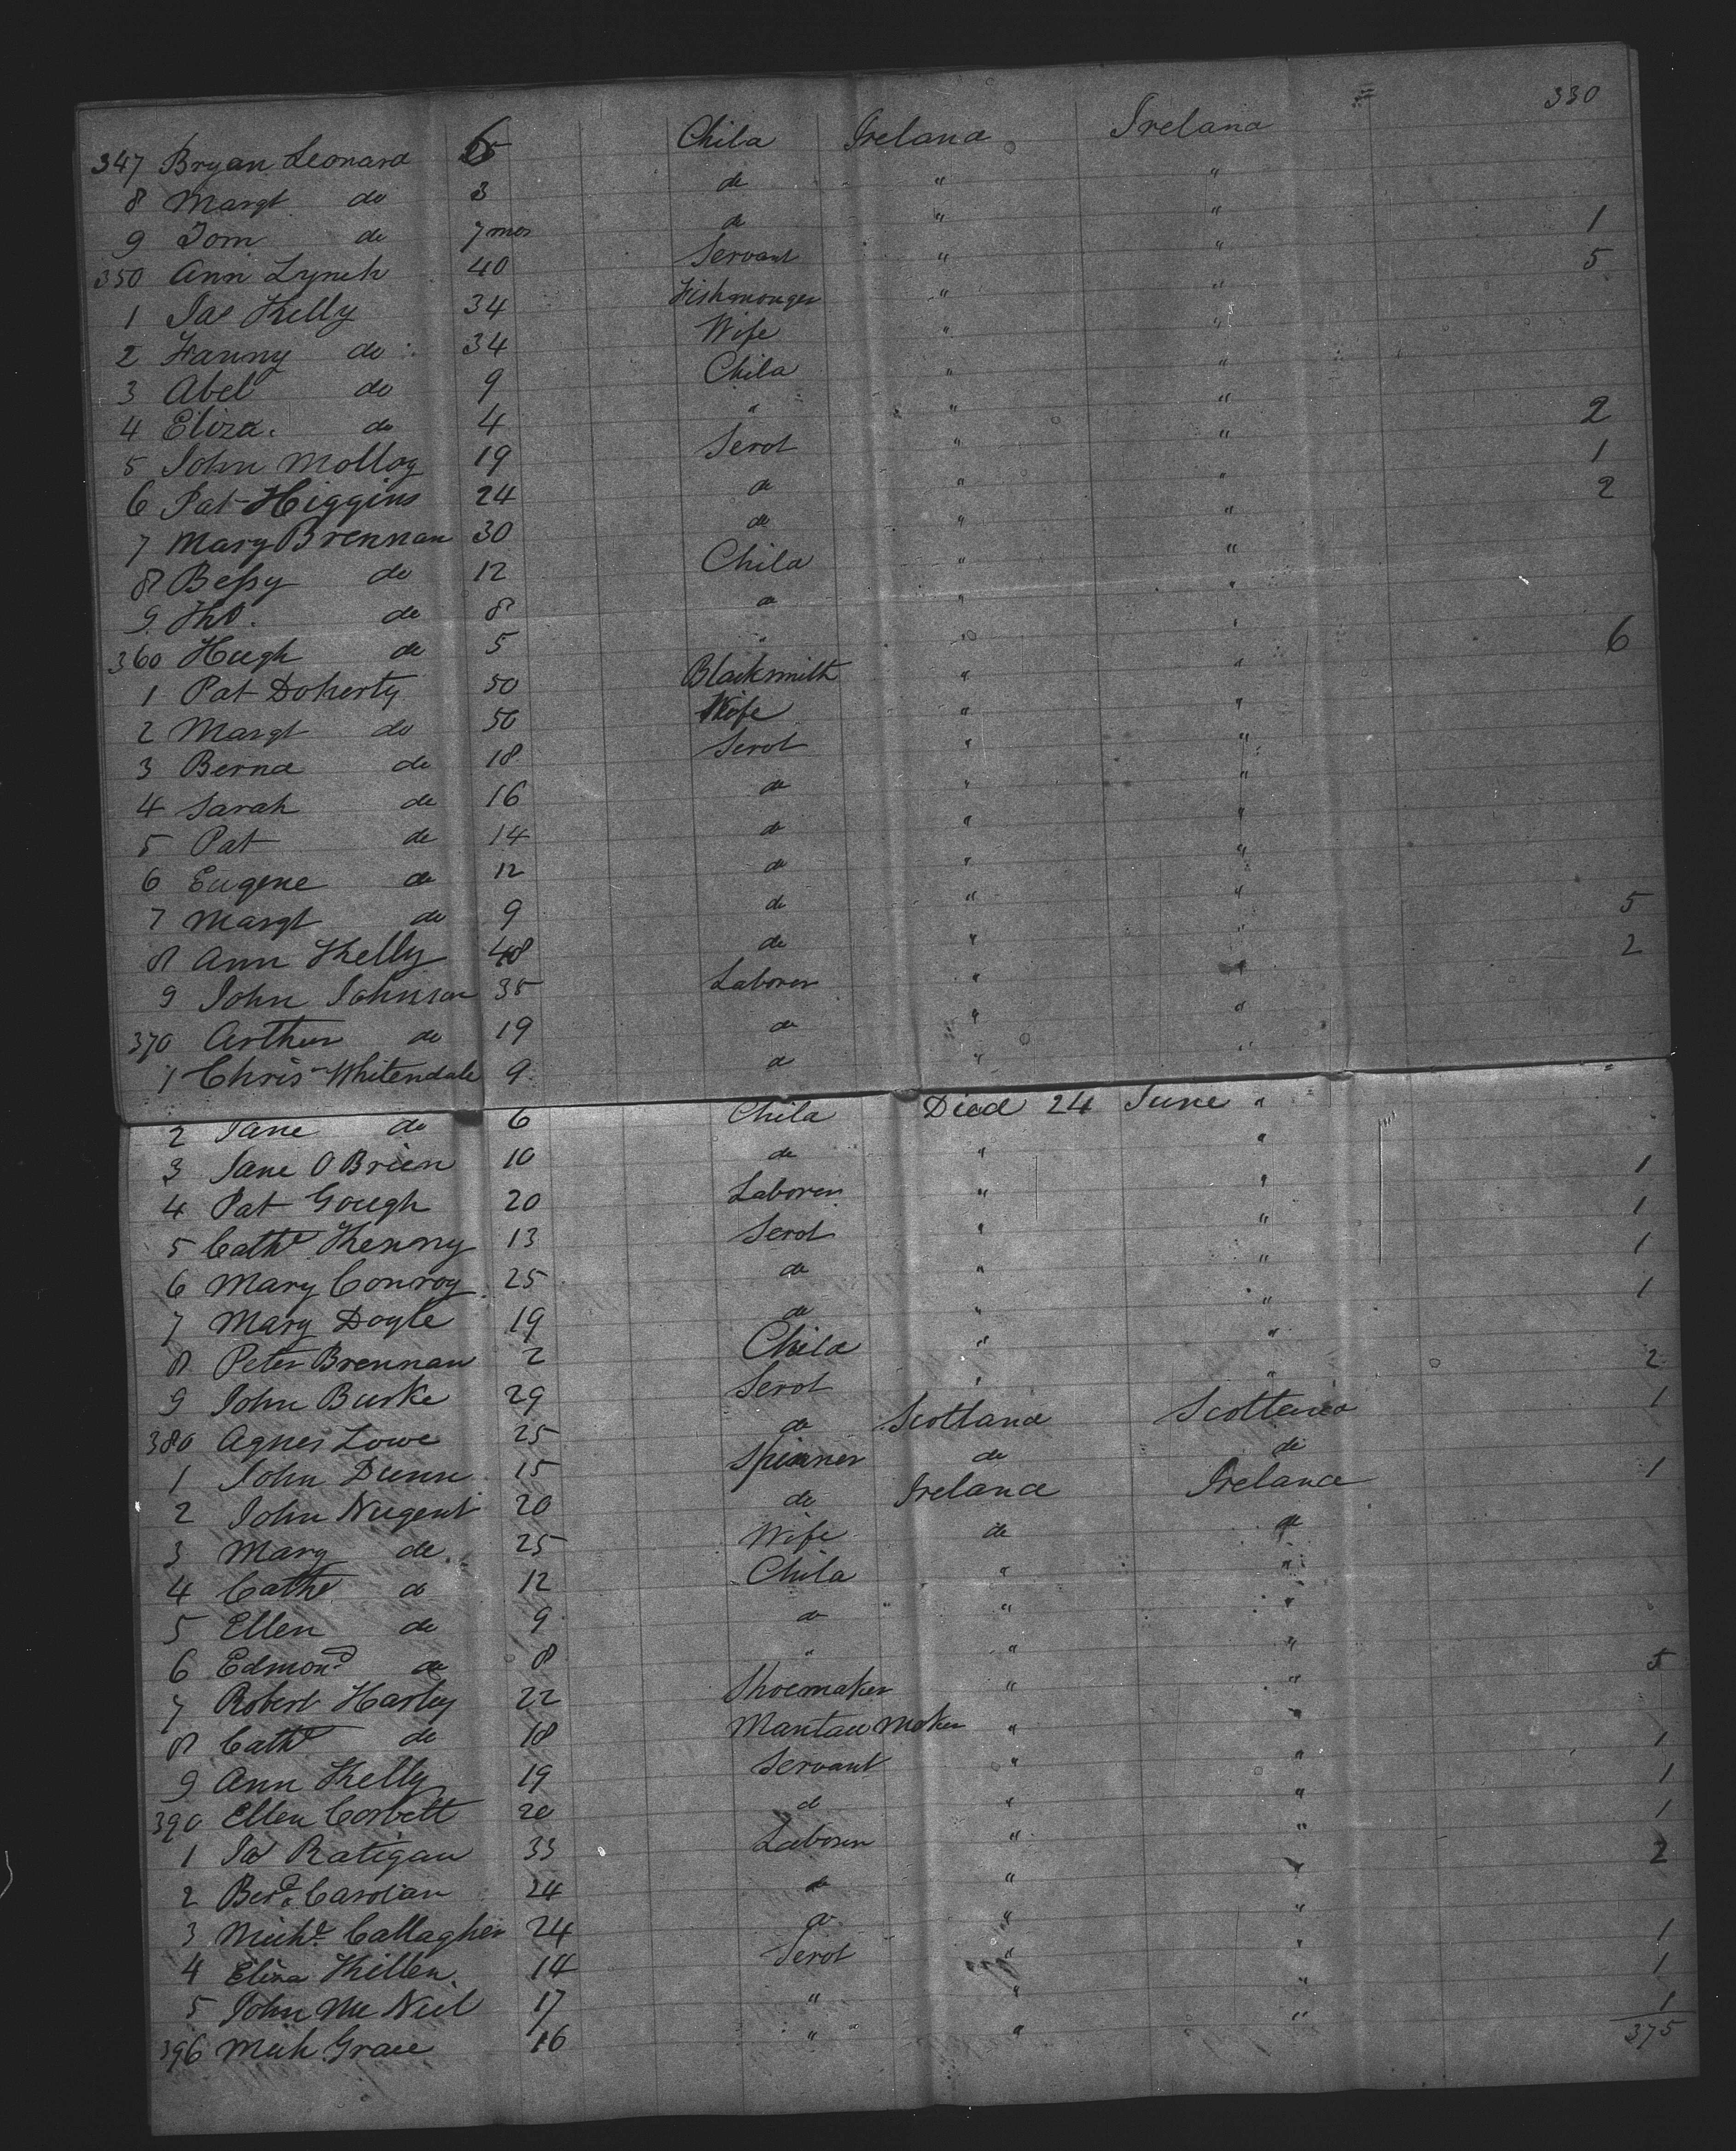 330
347 Bryan Leonard 6 Child Ireland Ireland
8 Margt do 3 do " "
9 Tom do 7 mos do " " 1
350 Ann Lynch 40 Servant " " 5
1 Jas Kelly 34 Fishmonger " "
2 Fanny do 34 Wife " "
3 Abel do 9 Child " "
4 Eliza do 4 " " " 2
5 John Molloy 19 Servt " " 1
6 Pat Higgins 24 do " " 2
7 Mary Brennan 30 do " "
8 Bessy do 12 Child " "
9 Tho. do 8 do " "
360 Hugh do 5 " " " 6
1 Pat Doherty 50 Blacksmith " "
2 Margt do 50 Wife " "
3 Bernd do 18 Servt " "
4 Sarah do 16 do " "
5 Pat do 14 do " "
6 Eugene do 12 do " "
7 Margt do 9 do " " 5
8 Ann Kelly 48 do " " 2
9 John Johnson 35 Laborer " "
370 Arthur do 19 do " "
1 Chris Whitendale 9 do " "
2 Jane do 6 Child Died 24 June "
3 Jane O Brien 10 do " " 1
4 Pat Gough 20 Laborer " " 1
5 Cathe Kenny 13 Servt " " 1
6 Mary Conroy 25 do " " 1
7 Mary Doyle 19 do " "
8 Peter Brennan 2 Child " " 2
9 John Burke 29 Servt " " 1
380 Agnes Lowe 25 do Scotland Scotland
1 John Dunn 15 Spinner do do 1
2 John Nugent 20 do Ireland Ireland
3 Mary do 25 Wife do do
4 Cathe do 12 Child " "
5 Ellen do 9 do " "
6 Edmond do 8 " " " 5
7 Robert Harley 22 Shoemaker " "
8 Cathe do 18 Mantau Maker " " 1
9 Ann Kelly 19 Servant " " 1
390 Ellen Corbett 20 do " " 1
1 Jas Ratigan 33 Laborer " " 2
2 Berd Carolan 24 do " "
3 Michl Callagher 24 do " " 1
4 Eliza Killen 14 Servt " " 1
5 John Mc Neil 17 " " " 1
396 Mich Grace 16 " " " 375